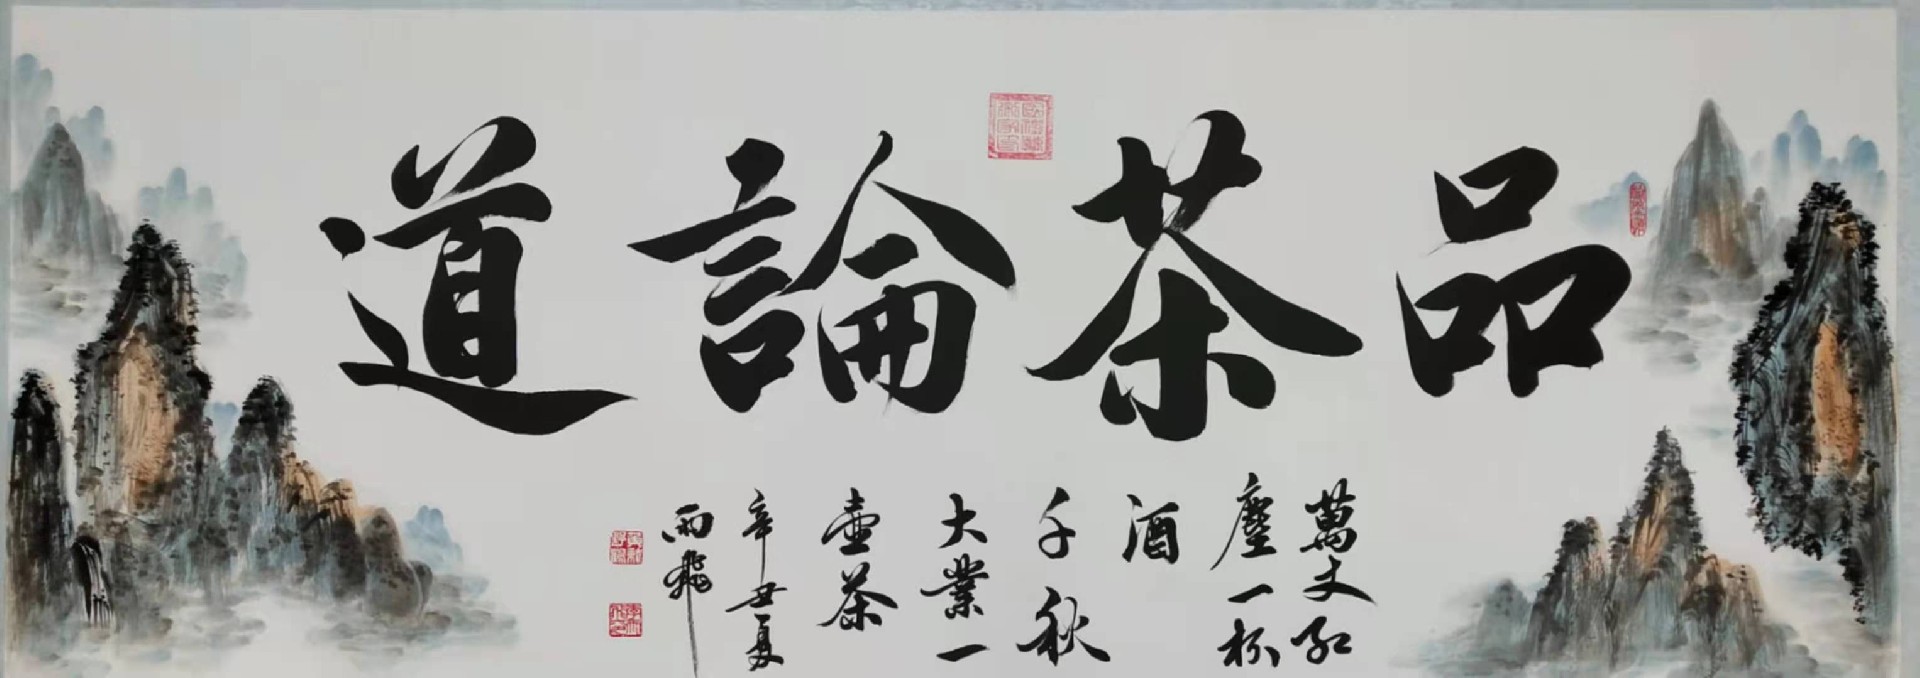 品茶論道
萬丈紅
塵一杯
酒
千秋
大業一
壺茶
辛丑夏
雨飛